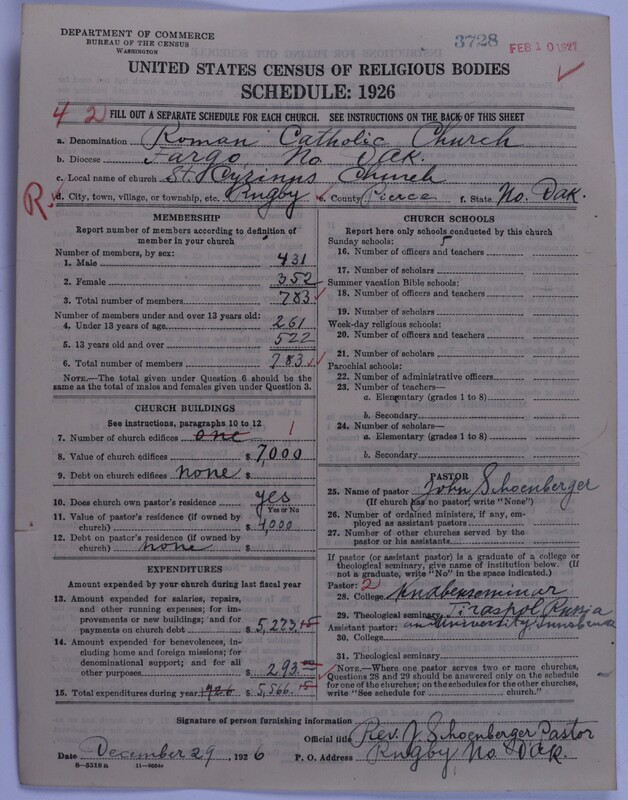 DEPARTMENT OF COMMERCE
BUREAU OF THE CENSUS
WASHINGTON
3728
FEB 10 1927
UNITED STATES CENSUS OF RELIGIOUS BODIES
SCHEDULE: 1926
4 2 FILL OUT A SEPARATE SCHEDULE FOR EACH CHURCH. SEE INSTRUCTIONS ON THE BACK OF THIS SHEET
a. Denomination Roman Catholic Church
b. Diocese Fargo No. Dak.
c. Local name of church St. Church
R d. City, town, village, or township, etc. Rugby e. County Pierce f. State No. Dak.
MEMBERSHIP
Report number of members according to definition of
member in your church
Number of members, by sex:
1. Male 431
2. Female 352
3. Total number of members 783
Number of members under and over 13 years old:
4. Under 13 years of age 261
5. 13 years old and over 522
6. Total number of members 783
NOTE.—The total given under Question 6 should be
the same as the total of males and females given under Question 3.
CHURCH BUILDINGS
See instructions, paragraphs 10 to 12
7. Number of church edifices one 1
8. Value of church edifices $ 7,000
9. Debt on church edifices none $
10. Does church own pastor's residence yes
Yes or No
11. Value of pastor's residence (if owned by
church) $ 4,000
12. Debt on pastor's residence (if owned by
church) none $
EXPENDITURES
Amount expended by your church during last fiscal year
13. Amount expended for salaries, repairs,
and other running expenses; for im-
provements or new buildings; and for
payments on church debt $ 5,273.15
14. Amount expended for benevolences, in-
cluding home and foreign missions; for
denominational support; and for all
other purposes $ 293.00
15. Total expenditures during year 1926 $ 5,566.15
CHURCH SCHOOLS
Report here only schools conducted by this church
Sunday schools: 5
16. Number of officers and teachers
17. Number of scholars
Summer vacation Bible schools:
18. Number of officers and teachers
19. Number of scholars
Week-day religious schools:
20. Number of officers and teachers
21. Number of scholars
Parochial schools:
22. Number of administrative officers
23. Number of teachers—
a. Elementary (grades 1 to 8)
b. Secondary
24. Number of scholars—
a. Elementary (grades 1 to 8)
b. Secondary
PASTOR
25. Name of pastor John Schoenberger
(If church has no pastor, write "None")
26. Number of ordained ministers, if any, em-
ployed as assistant pastors
27. Number of other churches served by the
pastor or his assistants
If pastor (or assistant pastor) is a graduate of a college or
theological seminary, give name of institution below. (If
not a graduate, write "No" in the space indicated.)
Pastor: 2
28. College Knabenseminar
29. Theological seminary Tiraspol Russia
Assistant pastor: University Innsbruck
30. College
31. Theological seminary
NOTE.—Where one pastor serves two or more churches,
Questions 28 and 29 should be answered only on the schedule
for one of the churches; on the schedules for the other churches,
write "See schedule for church."
Signature of person furnishing information Rev. J. Schoenberger Pastor
Official title
Date December 29, 1926 P. O. Address Rugby No. Dak.
8—5318 a